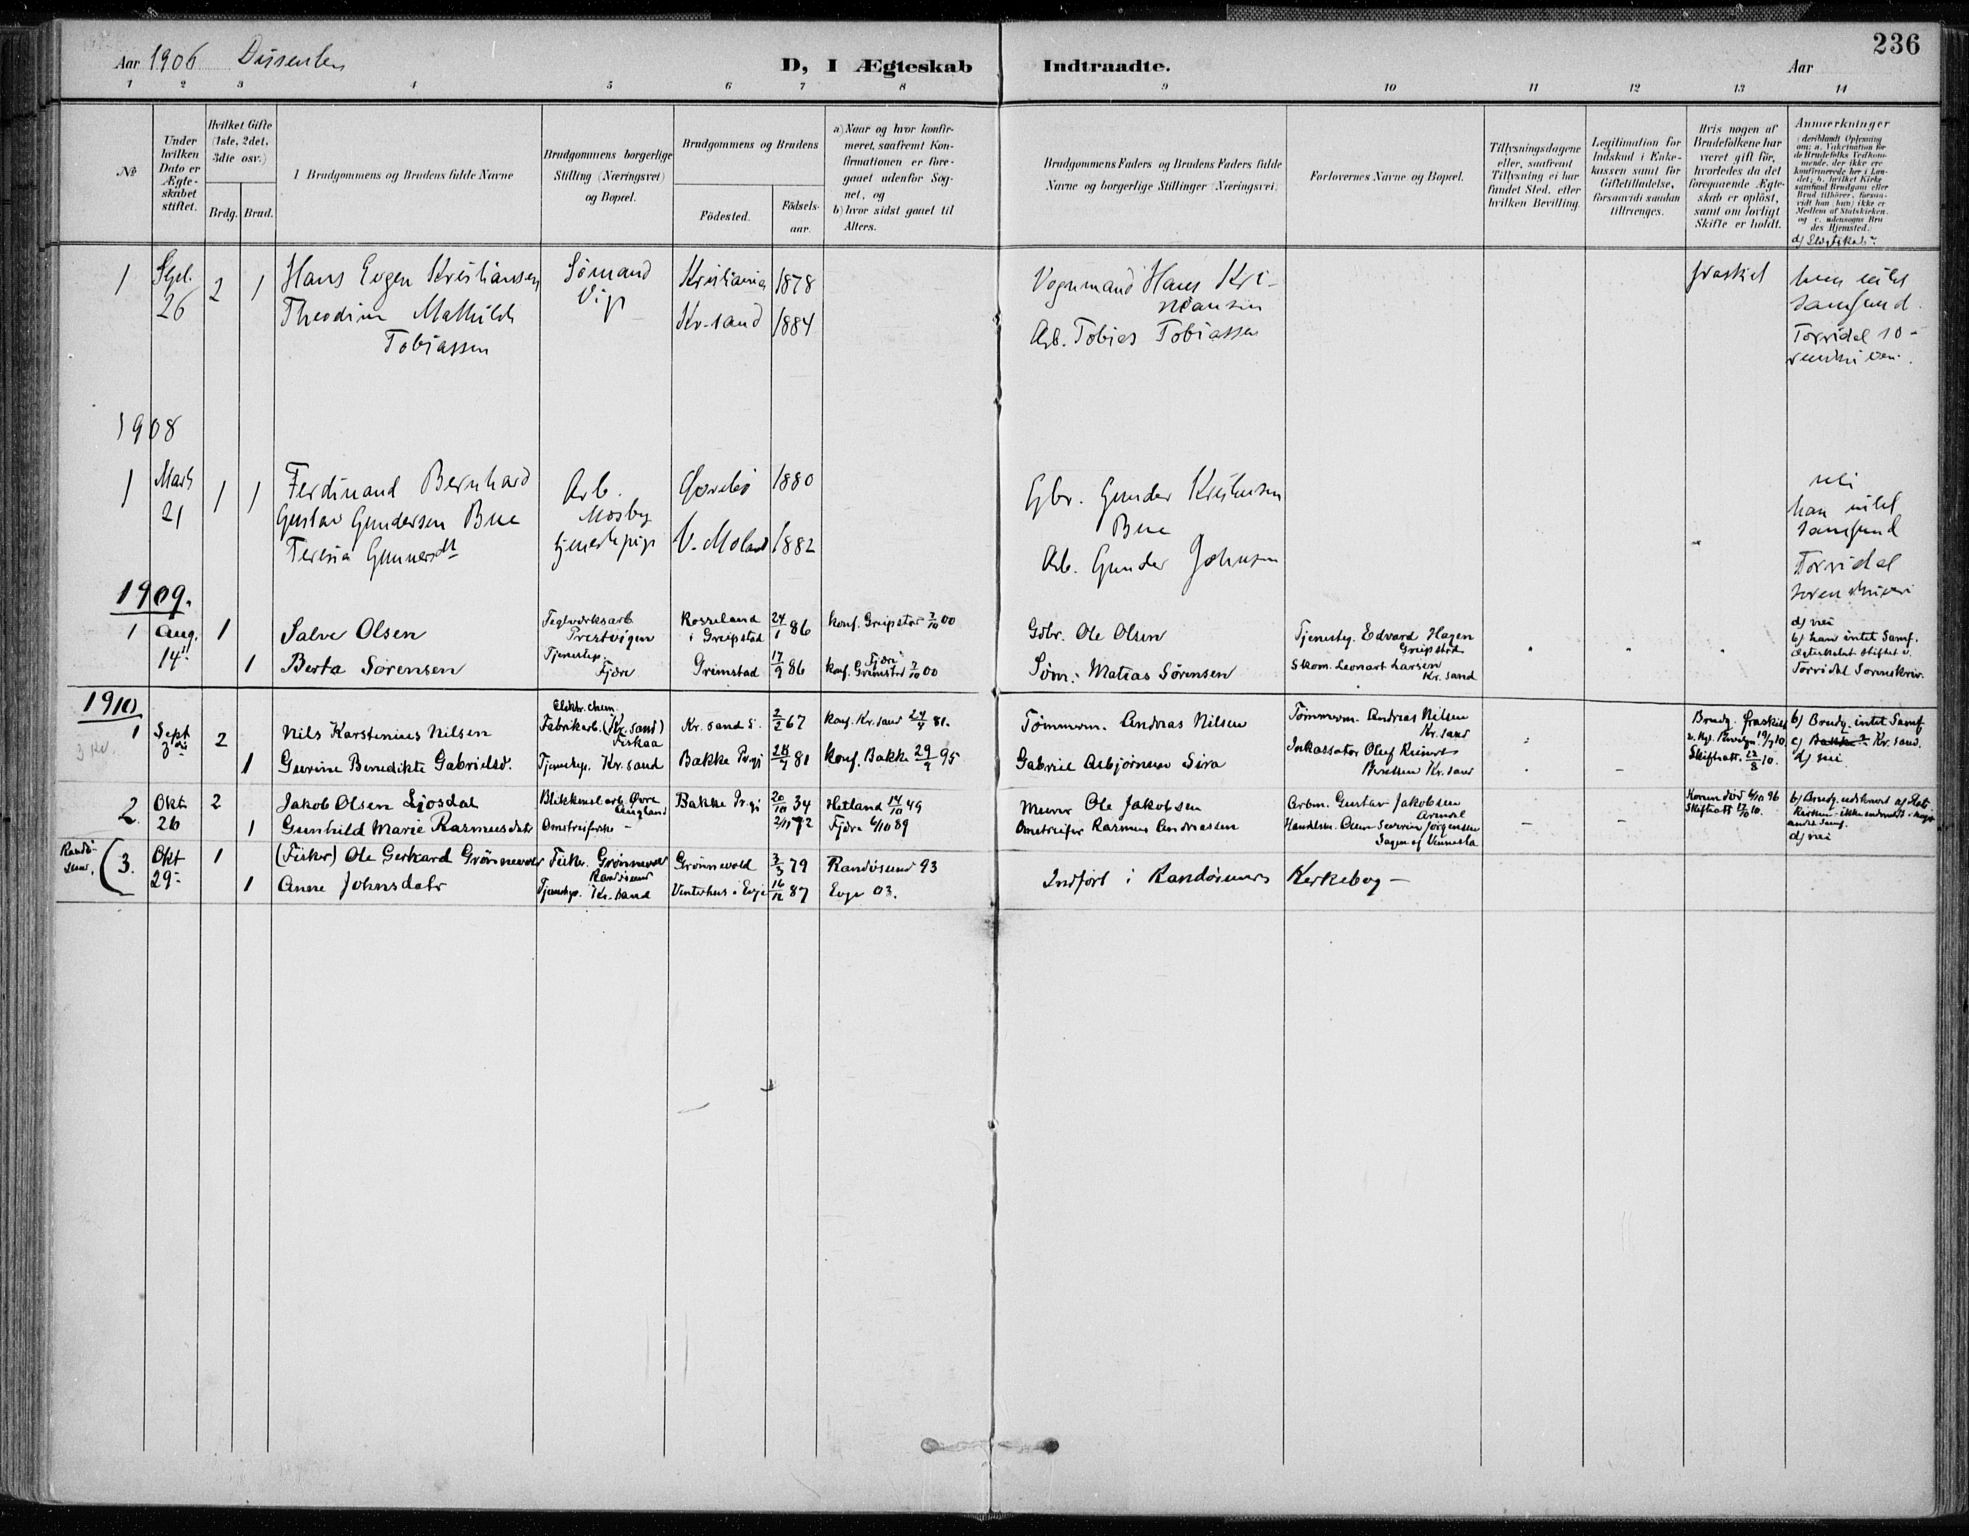 236
Aar 1906 Dissenter
D, I Ægteskab Indtraadte.
Aar
1 2 3 4 5 6 7 8 9 10 11 12 13 14
№
Under hvilken Dato er Ægteskabet stiftet.
Hvilket Gifte (1ste, 2det, 3die osv.)
Brdg. Brud.
I Brudgommens og Brudens fulde Navne
Brudgommens borgerlige Stilling (Næringsvei) og Bopæl.
Brudgommens og Brudens
Fødested.
Fødselsaar.
a) Naar og hvor konfirmeret, saafremt Konfirmationen er foregaaet udenfor Sognet, og
b) hvor sidst gaaet til Alters.
Brudgommens Faders og Brudens Faders fulde Navne og borgerlige Stillinger (Næringsvei)
Forlovernes Navne og Bopæl.
Tillysningsdagene eller, saafremt Tillysning ei har fundet Sted, efter hvilken Bevilling.
Legitimation for Indskud i Enkekassen samt for Giftetilladelse, forsaavidt saadan tiltrænges.
Hvis nogen af Brudefolkene har været gift før, hvorledes da det foregaaende Ægteskab er opløst, samt om lovligt Skifte er holdt.
Anmærkninger
d) Slegtskab:
1 Sept. 26 2 1
Hans Evgen Kristiansen
Sømand
Vige
Kristiania 1878
Vognmand Hans Kristiansen
fraskilt
han intet
samfund.
Theodine Mathilde
Tobiassen
Kr-sand 1884
Arb. Tobias Tobiassen
Torridal
1908
1 Marts 21 1 1
Ferdinand Bernhard
Gustav Gundersen Bue
Arb.
Mosby
Øvrebø 1880
Gbr. Gunder Kristensen
Bue
nei
han intet
samfund
Teresia Gunnersdt
tjenestepige
V. Moland 1882
Arb. Gunder Johnsen
Torridal
sorenskriveri
1909.
1 Aug. 14. 1
Salve Olsen
Teglværksarb.
Prestvigen
Rosseland
i Greipstad
24/1 86
konf. Greipstad 7/10 00
Gdbr. Ole Olsen
Tjenesteg. Edvard Hagen
Greipstad
d) nei
b) han intet Samf.
Ægteskabet stiftet v.
Torridal Sorenskriv.
1
Berta Sørensen
Tjenestep.
Fjære
Grimstad 17/9 86
konf. Fjære Grimstad 7/10 00
Søm. Matias Sørensen
Skom. Leonart Larsen
Kr. sand
1910
1 Sept 3die 2
Nils Karstenius Nilsen
Elektr. chem.
Fabrikarb. (Kr. sand)
Fiskaa
Kr. sand S. 2/2 67
konf. Kr. sand
Tømmerm. Andreas Nilsen
Tømmerm. Andreas Nilsen
Kr. sand
Brudg. fraskilt
19/7 10.
Skifteatt. 22/8 10.
b) Brudg. intet Samf
c) Bakke? Kr. sand.
d) nei
1
Gurine Benedikte Gabrielsd.
Tjenestep. Kr. sand
Bakke Prgj 81
konf. Bakke 29/9 95
Gabriel Asbjørnsen Sira
Inkassator Oluf Reinert
Kr. sand
2. Okt 26 2
Jakob Olsen Ljosdal
Blikkensl. arb. Øvre
Augland
Bakke Prgj 20/10 34
Hetland 14/10 49
Murer Ole Jakobsen
Arbm. Gustav Jakobsen
Arendal
Konen død 6/10 96
Skifteatt 17/10 10.
1
Gunhild Marie Rasmusdatr
Omstreiferske -
2/11 72
Fjære 6/10 89
Omstreifer Rasmus Andreassen
Handelsm. Severin Jørgensen
d) nei
Randøsund. (3. Okt 29 1
(Fisker) Ole Gerhard Grønnevold
Fisker. Grønnevold
Randøsund
Grønnevold 3/3 79
Randøsund 93
Indført i Randøsunds Kirkebog -
1
Anne Johnsdatr
Tjenstep. Kr. sand
Vintehus i Evje 16/12 87
Evje 03.